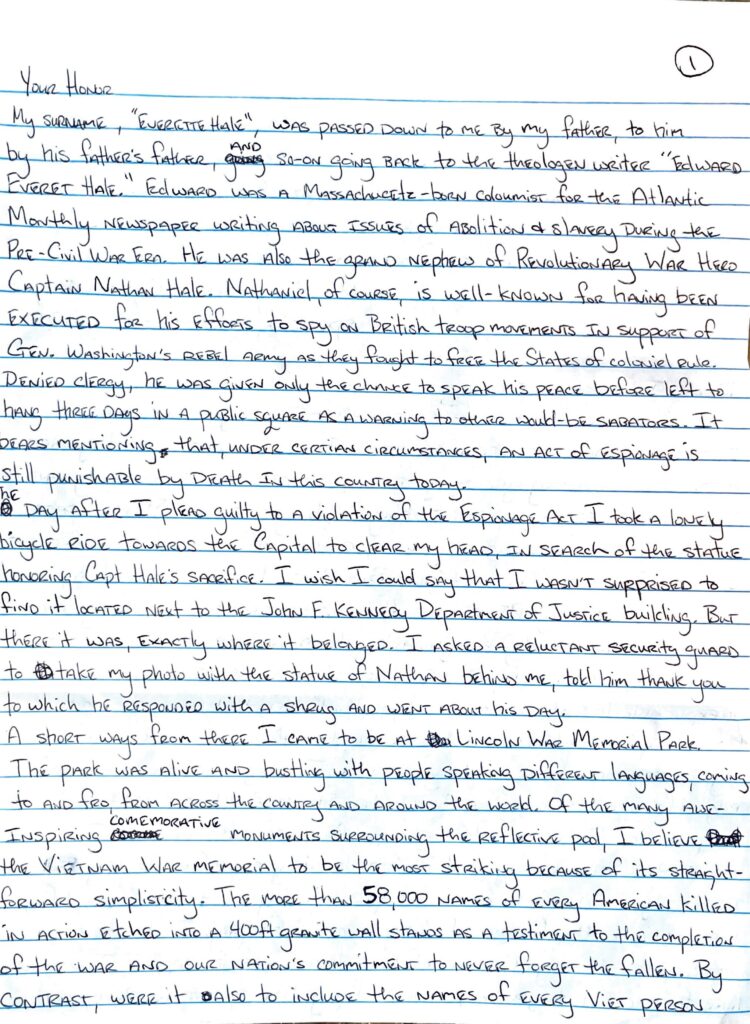 1
Your Honor
My surname, "Everette Hale", was passed down to me by my father, to him
by his father's father, and so-on going back to the theologen writer "Edward
Everet Hale." Edward was a Massachucetz-born coloumist for the Atlantic
Monthly newspaper writing about issues of abolition & slavery during the
Pre-Civil War Era. He was also the grand nephew of Revolutionary War Hero
Captain Nathan Hale. Nathaniel, of course, is well-known for having been
executed for his efforts to spy on British troop movements in support of
Gen. Washington's rebel army as they fought to free the States of coloniel rule.
Denied clergy, he was given only the chance to speak his peace before left to
hang three days in a public square as a warning to other would-be sabators. It
bears mentioning, that, under certian circumstances, an act of espionage is
still punishable by death in this country today.
he day after I plead guilty to a violation of the Espionage Act I took a lonely
bicycle ride towards the Capital to clear my head, in search of the statue
honoring Capt Hale's sacrifice. I wish I could say that I wasn't surprised to
find it located next to the John F. Kennedy Department of Justice building. But
there it was, exactly where it belonged. I asked a reluctant security guard
to take my photo with the statue of Nathan behind me, told him thank you
to which he responded with a shrug and went about his day.
A short ways from there I came to be at Lincoln War Memorial Park.
The park was alive and bustling with people speaking different languages, coming
to and fro, from across the country and around the world. Of the many awe-
inspiring comemorative monuments surrounding the reflective pool, I believe
the Vietnam War memorial to be the most striking because of its straight-
forward simplistcity. The more than 58,000 names of every American killed
in action etched into a 400ft granite wall stands as a testiment to the completion
of the war and our nation's commitment to never forget the fallen. By
contrast, were it also to include the names of every Viet person